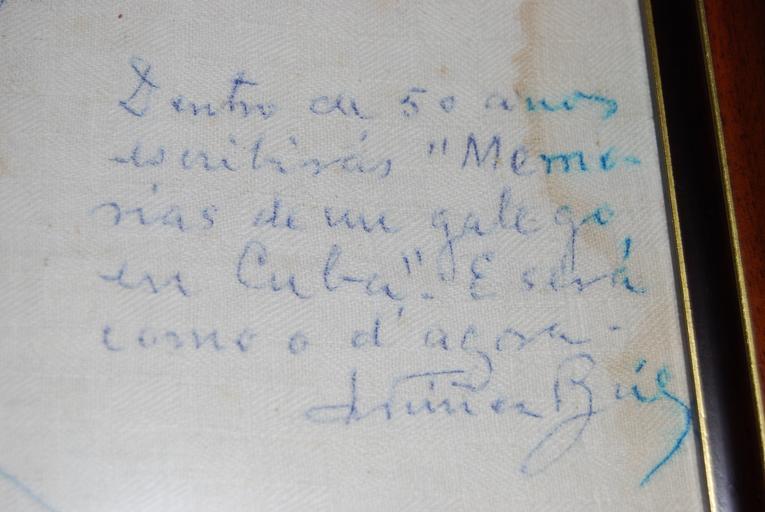 Dentro de 50 anos
escribirás "Memo-
rias de un galego
en Cuba". E será
como o d'agora.
Núñez Búa